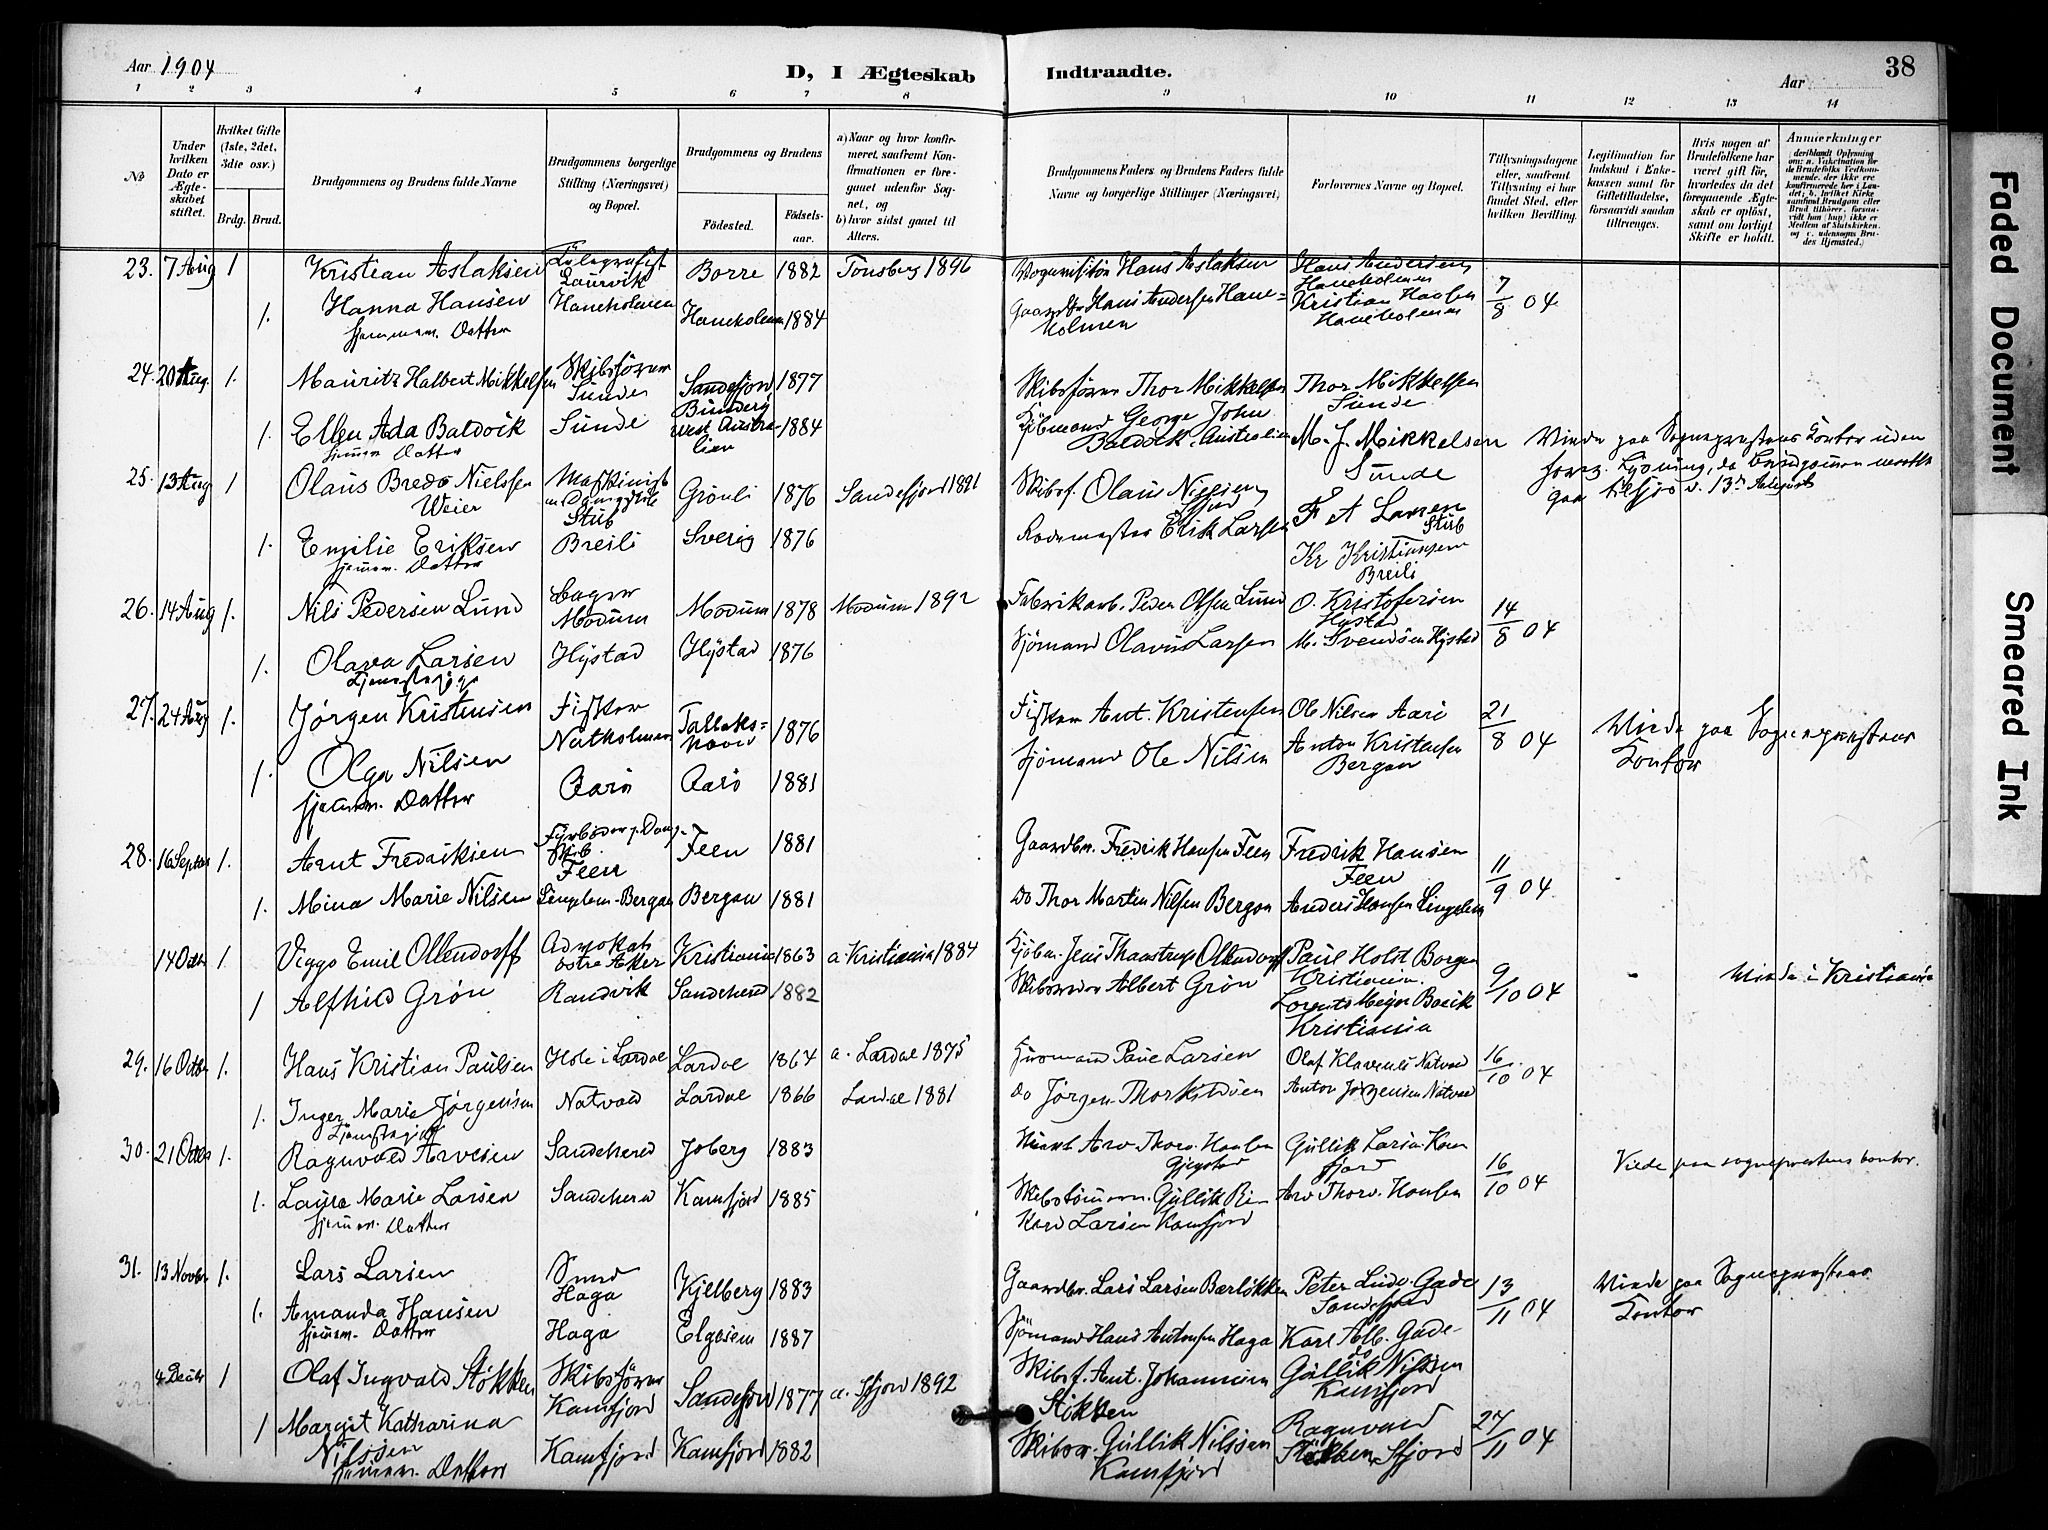 Aar 1904
D, I Ægteskab Indtraadte.
Aar
38
1 2 3 4 5 6 7 8 9 10 11 12 13 14
No
Under hvilken Dato er Ægteskabet stiftet.
Hvilket Gifte (1ste, 2det, 3dte osv.)
Brdg. Brud.
Brudgommens og Brudens fulde Navne
Brudgommens borgerlige Stilling (Næringsvei) og Bopæl.
Brudgommens og Brudens
Fødested.
Fødselsaar.
a) Naar og hvor konfirmeret, saafremt Konfirmationen er foregaaet udenfor Sognet, og
b) hvor sidst gaaet til Alters.
Brudgommens Faders og Brudens Faders fulde Navne og borgerlige Stillinger (Næringsvei)
Forlovernes Navne og Bopæl.
Tillysningsdagene eller, saafremt Tillysning ei har fundet Sted, efter hvilken Bevilling.
Legitimation for Indskud i Enkekassen samt for Giftetilladelse, forsaavidt saadan tiltrænges.
Hvis nogen af Brudefolkene har været gift før, hvorledes da det foregaaende Ægteskab er opløst, samt om lovligt Skifte er holdt.
Anmerkninger
23. 7 Aug 1 Kristian Aslaksen Telegrafist Laurvik Borre 1882 Tønsberg 1896 Hans Aslaksen Hans Andersen Haneholmen 7/8 04
1. Hanna Hansen hjemmev. Datter Haneholmen Haneholmen 1884 Gaardbr Hans Andersen Haneholmen Kristian Hansen Haneholmen
24. 20 Aug. 1. Mauritz Halbert Mikkelsen Skibsfører Sunde Sandefjord 1877 Skibsfører Thor Mikkelsen Thor Mikkelsen Sunde
1. Ellen Ada Baldock hjemm Datter Sunde West Australien 1884 George John Baldock. Australien M. J. Mikkelsen Sunde Viede paa Sognepræstens Kontor uden Lysning, da Brudgommen maatte gaa tilsjøs d. 13de August
25. 13 Aug 1 Olaus Bredo Nielssen Weier Maskinist Stub Grønli 1876 Sandefjord 1891 Skibsf. Olaus Nielsen Sfjord F A Larsen Stub
1. Emilie Eriksen hjemmev. Datter Breili Sverig 1876 Rodemester Erik Larsen Kr Kristiansen Breili
26. 14 Aug 1. Nils Pedersen Lund Bager Modum Modum 1878 Modum 1892 Fabrikarb. Peder Olsen Lund O. Kristofersen Hystad 14/8 04
1. Olava Larsen Tjenestepige Hystad Hystad 1876 Sjømand Olavus Larsen M. Svendsen Hystad
27. 24 Aug 1. Jørgen Kristensen Fisker Natholmen Tallakshavn 1876 Fisker Ant. Kristensen Ole Nilsen Aarø 21/8 04 Viede paa Sognepræstens Kontor
1. Olga Nilsen hjemmev. Datter Aarø Aarø 1881 Sjømand Ole Nilsen Anton Kristensen Bergan
28. 16 Septbr 1. Arnt Fredriksen Fyrbøder p. Dampskib Feen Feen 1881 Gaardbr. Fredrik Hansen Feen Fredrik Hansen Feen 11/9 04
1. Mina Marie Nilsen Lingelem-Bergan Bergan 1881 Do Thor Martin Nilsen Bergan Anders Hansen Lingelem
14 Octbr 1. Viggo Emil Ollendorff Advokat østre Aker Kristiania 1863 a. Kristiania 1884 Kjøbm. Jens Thaastrup Ollendorff Paul Holst Borgen Kristiania. 9/10 04 Viede i Kristiania
1 Alfhild Grøn Randvik Sandeherred 1882 Skibsreder Albert Grøn Lorents Meyer Boeck Kristiania
29. 16 Octbr 1. Hans Kristian Paulsen Hole i Lardal Lardal 1864 a. Lardal 1875 Paul Larsen Olaf Klavenes Natvad 16/10 04
1. Inger Marie Jørgensen Tjenestepige Natvad Lardal 1866 Lardal 1881 Do Jørgen Thorkildsen Anton Jørgensen Natvad
30. 21 Octbr 1. Ragnvald Arvesen Sandeherred Joberg 1883 Arv Thorv. Hansen Gjegstad Gullik Larsen Kamfjord 16/10 04 Viede paa sognepræstens kontor.
1. Laura Marie Larsen hjemmev. Datter Sandeherred Kamfjord 1885 Skibstømmerm. Gullik Rikard Larsen Kamfjord Arv Thorv. Hansen
31. 13 Novbr 1. Lars Larsen Smed Haga Kjelberg 1883 Gaardbr. Lars Larsen Bærløkken Peter Ludv. Gade Sandefjord 13/11 04 Viede paa Sognepræstens Kontor
1. Amanda Hansen hjemmev. Datter Haga Elgesem 1887 Sjømand Hans Antonsen Haga Karl Alb. Gade do
32. 4 Decbr 1 Olaf Ingvald Støkken Skibsfører Kamfjord Sandefjord 1877 a. Sfjord 1892 Skibsf. Ant. Johannesen Støkken Gullik Nilssen Kamfjord 27/11 04
1 Margit Katharina Nilssen hjemmev. Datter Kamfjord Kamfjord 1882 Gullik Nilssen Kamfjord Ragnvald Støkken Sfjord
Faded Document
Smeared Ink